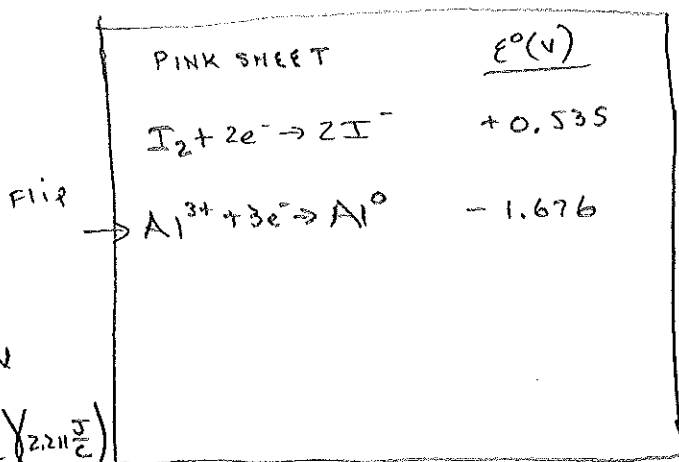 PINK SHEET ε°(V)
I₂ + 2e⁻ → 2I⁻ + 0.535
Flip → Al³⁺ + 3e⁻ → Al⁰ - 1.676
2.211 J/C)